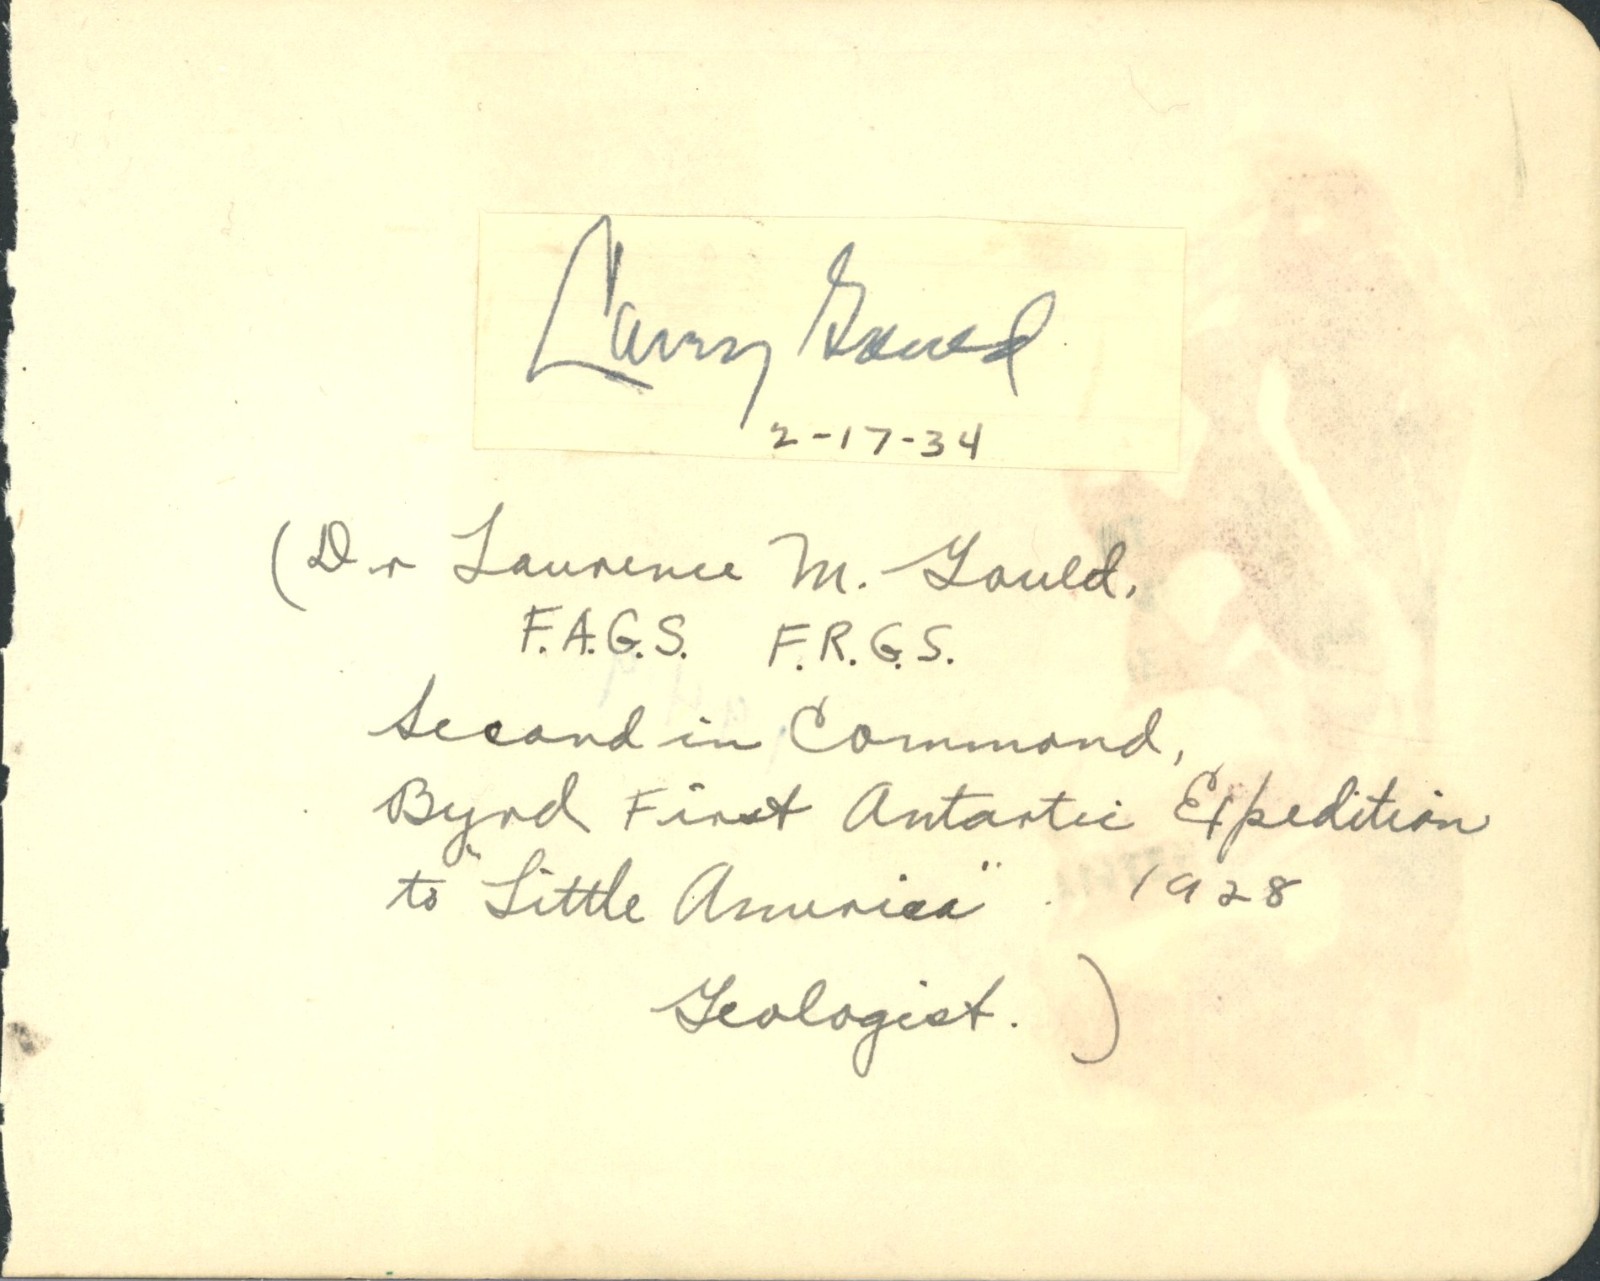 Larry Gould
2-17-34
(Dr Laurence M. Gould,
F.A.G.S. F.R.G.S.
Second in Command,
Byrd First Antartic Expedition
to "Little America" . 1928
Geologist. )